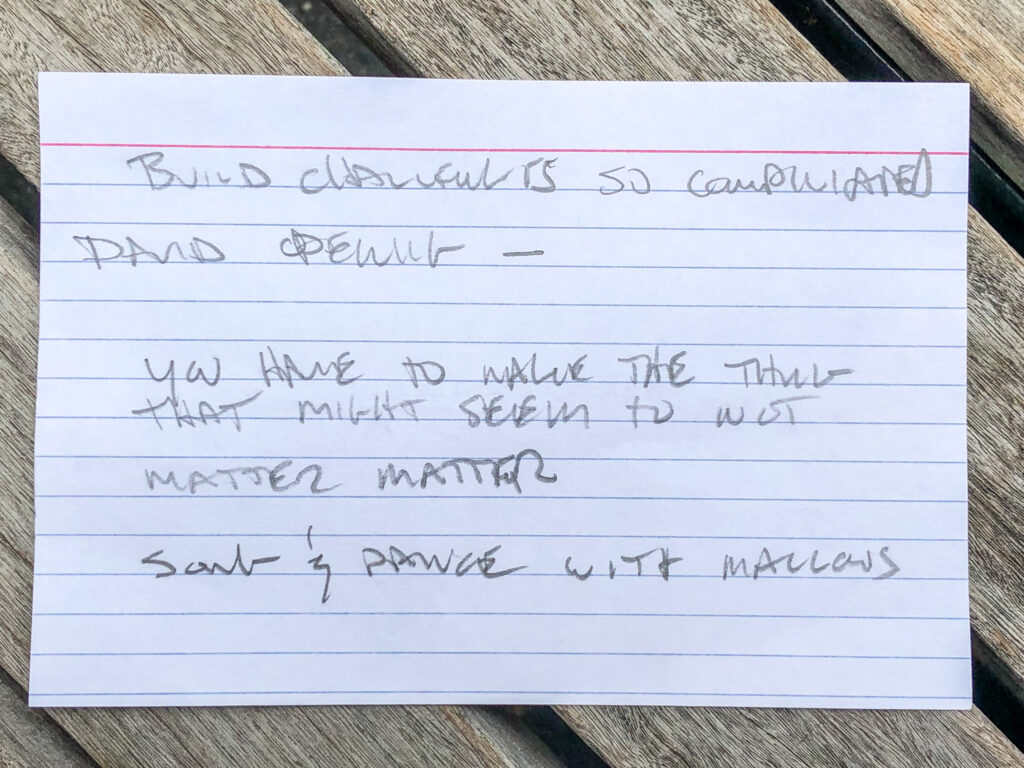 BUILD CHALLENGES SO COMPLICATED
DAVID OPENING —
YOU HAVE TO MAKE THE THING
THAT MIGHT SEEM TO NOT
MATTER MATTER
SONG & DANCE WITH MALLOWS